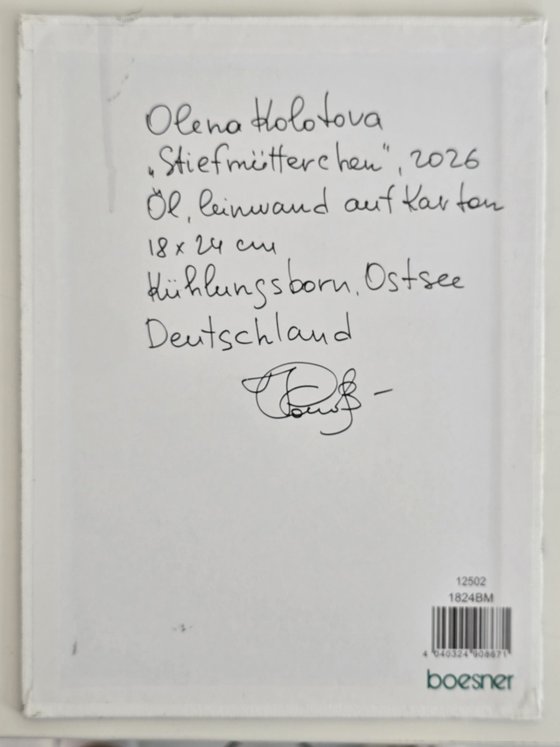 Olena Kolotova
„Stiefmütterchen“, 2026
Öl, leinwand auf Karton
18 x 24 cm
Kühlungsborn, Ostsee
Deutschland
12502
1824BM
4 040324 908671
boesner